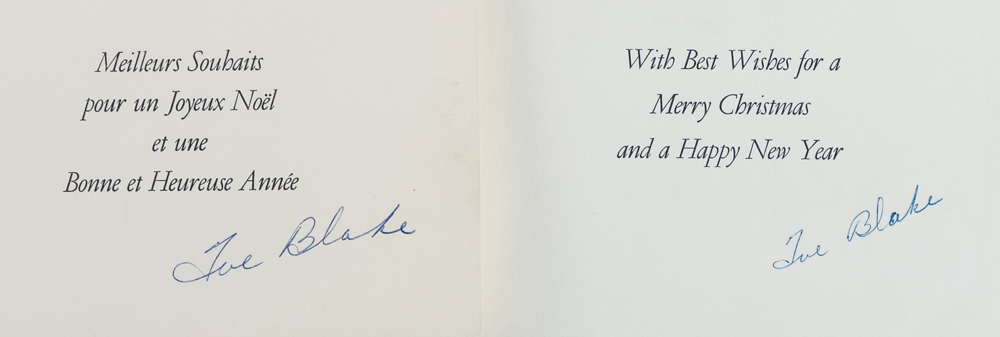 Meilleurs Souhaits
pour un Joyeux Noël
et une
Bonne et Heureuse Année
Toe Blake
With Best Wishes for a
Merry Christmas
and a Happy New Year
Toe Blake